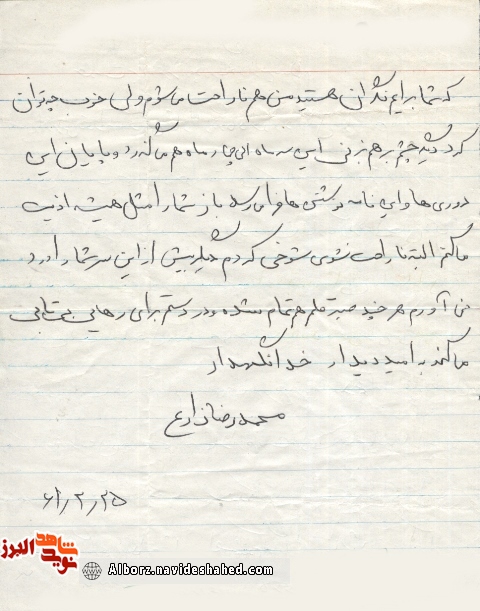 که شما برایم نگران هستید من هم ناراحت می شوم ولی خوب چه توان
کرد دیگر چشم بر هم بزنی این سه ماه الی چار ماه هم میگذرد و پایان این
دوری ها و این نامه نوشتنی ها فرا می رسد باز شما را مثل همیشه اذیت
می کنم البته ناراحت نشوی شوخی کردم دیگر بیش از این سر شما را درد
نمی آورم هر چند صبر قلم هم تمام شده و در دستم برای رهایی بی تابی
می کند به امید دیدار خدانگهدار
محمدرضا زارع
۶۱٫۲٫۲۵
نوید شاهد البرز
Alborz.navideshahed.com